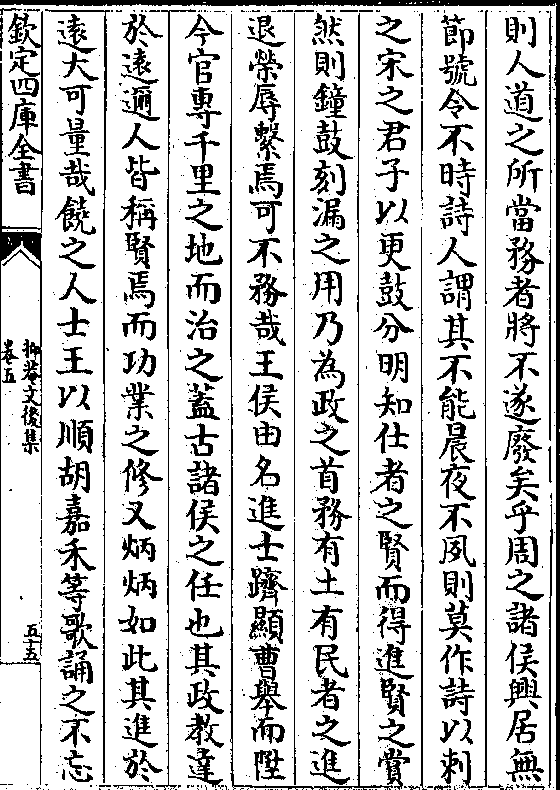 則人道之所當務者將不遂廢矣乎周之諸侯興居無
節號令不時詩人謂其不能晨夜不夙則莫作詩以刺
之宋之君子以更鼓分明知仕者之賢而得進賢之賞
然則鐘鼓刻漏之用乃為政之首務有土有民者之進
退榮辱繫焉可不務哉王侯由名進士躋顯曹舉而陞
今官專千里之地而治之蓋古諸侯之任也其政教達
於遠邇人皆稱賢焉而功業之修又炳炳如此其進於
遠大可量哉饒之人士王以順胡嘉禾等歌誦之不忘
欽定四庫全書
抑菴文後集
卷五
五十五